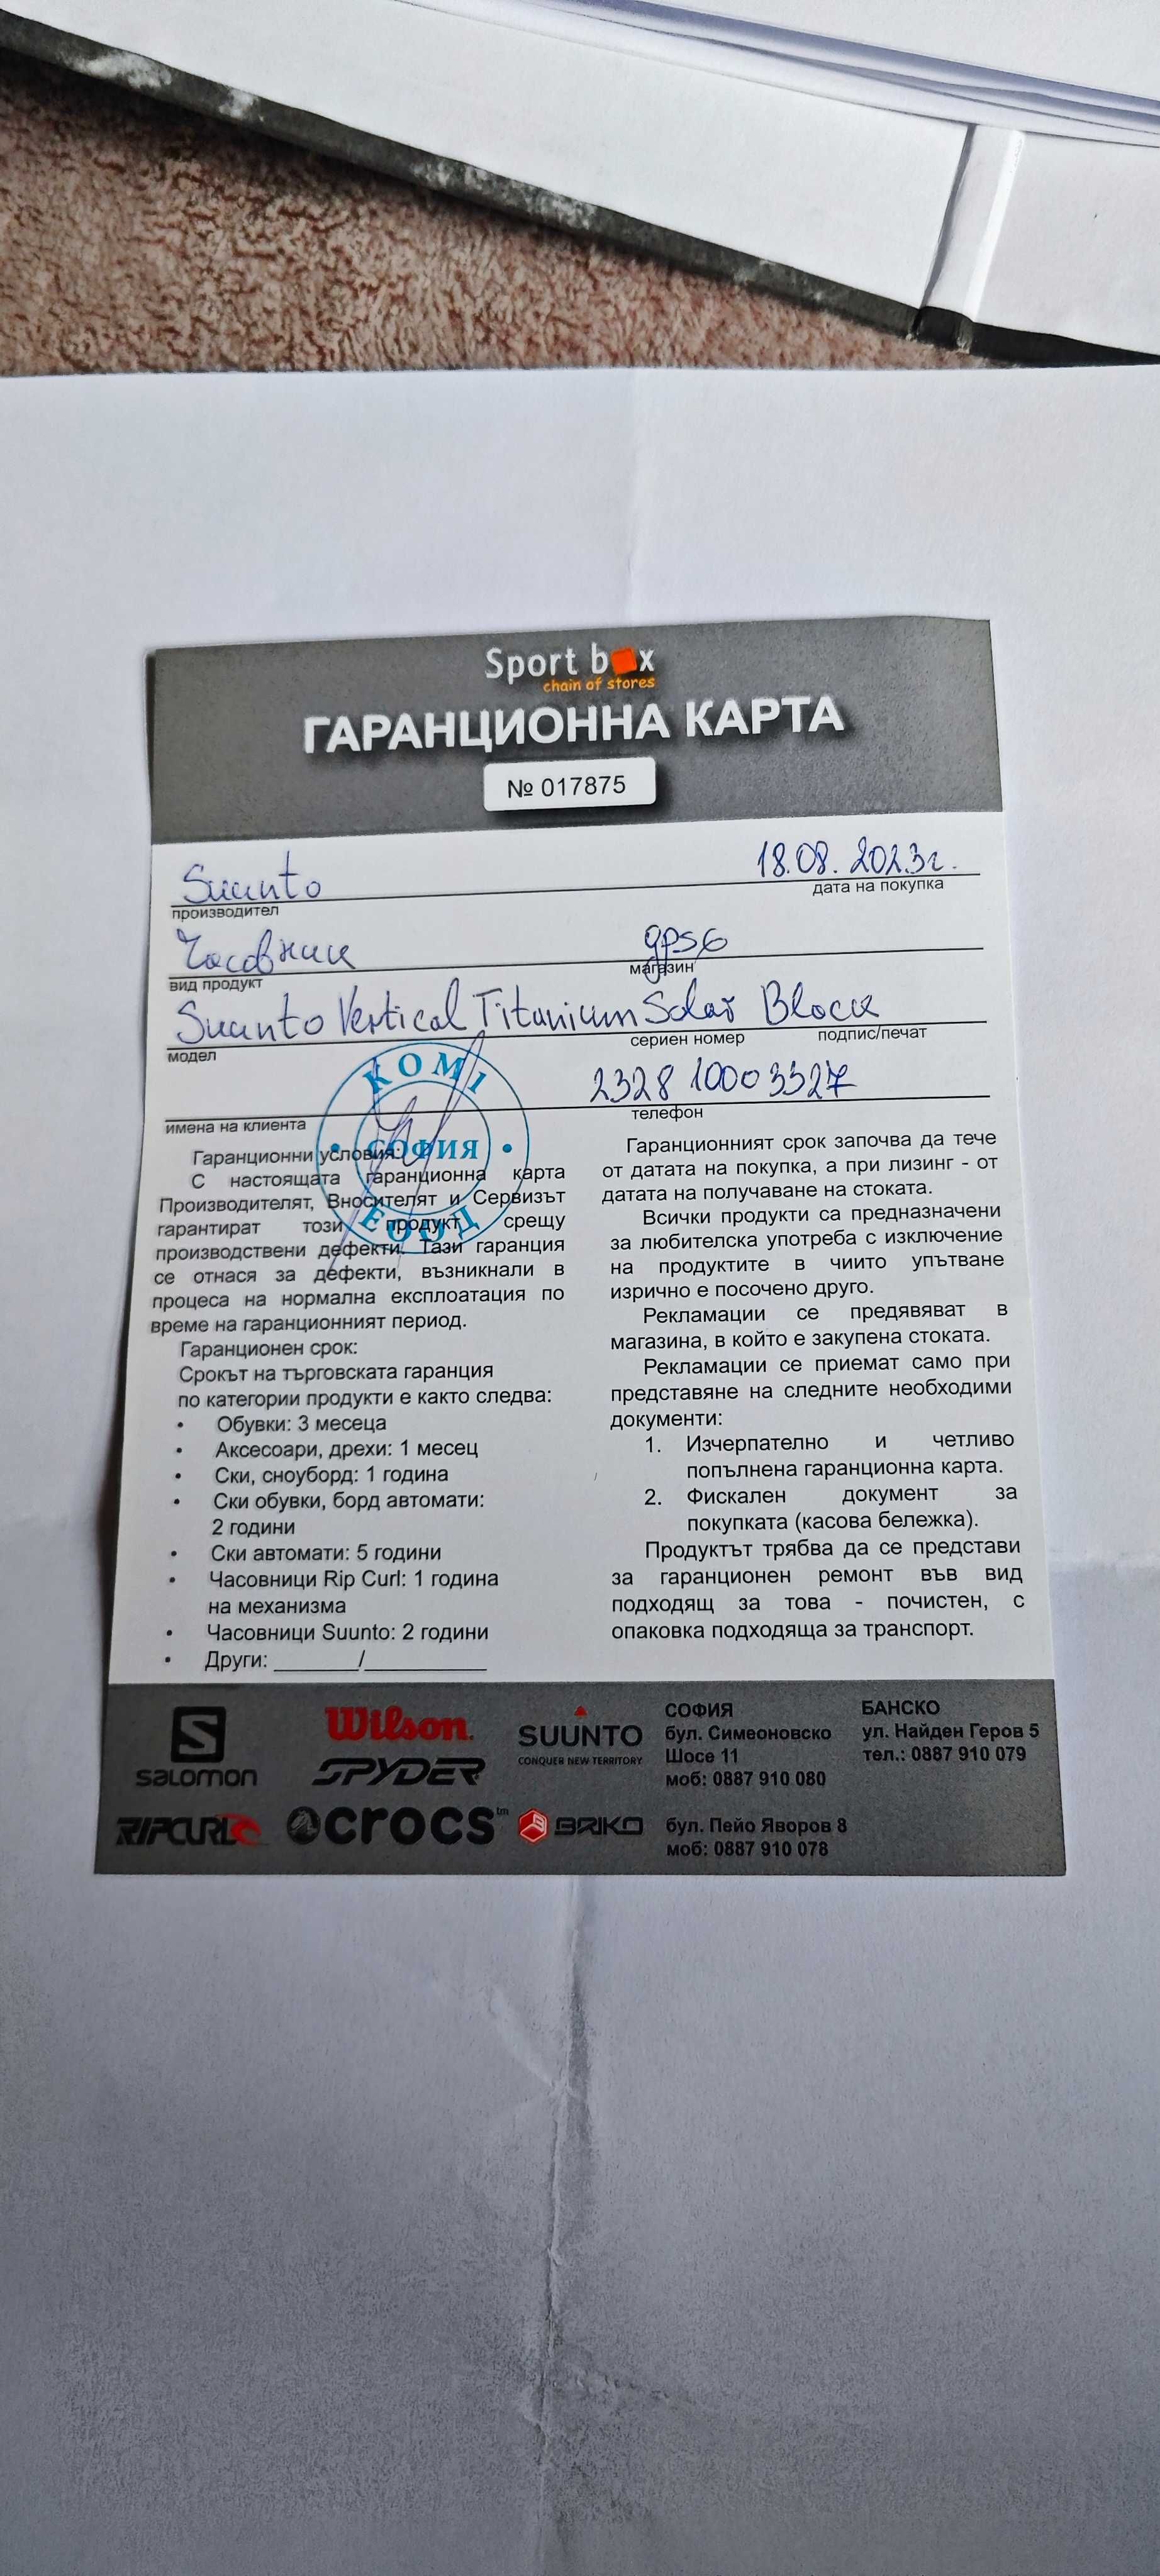 Sport box
chain of stores
ГАРАНЦИОННА КАРТА
№ 017875
Suunto 18.08.2023г.
производител дата на покупка
Часовник gps6
вид продукт магазин
Suunto Vertical Titanium Solar Black
модел сериен номер подпис/печат
2328 10003327
имена на клиента телефон
КОМI
СОФИЯ
ЕООД
Гаранционни условия:
С настоящата гаранционна карта
Производителят, Вносителят и Сервизът
гарантират този продукт срещу
производствени дефекти. Тази гаранция
се отнася за дефекти, възникнали в
процеса на нормална експлоатация по
време на гаранционният период.
Гаранционен срок:
Срокът на търговската гаранция
по категории продукти е както следва:
• Обувки: 3 месеца
• Аксесоари, дрехи: 1 месец
• Ски, сноуборд: 1 година
• Ски обувки, борд автомати:
2 години
• Ски автомати: 5 години
• Часовници Rip Curl: 1 година
на механизма
• Часовници Suunto: 2 години
• Други: _______/__________
Гаранционният срок започва да тече
от датата на покупка, а при лизинг - от
датата на получаване на стоката.
Всички продукти са предназначени
за любителска употреба с изключение
на продуктите в чиито упътване
изрично е посочено друго.
Рекламации се предявяват в
магазина, в който е закупена стоката.
Рекламации се приемат само при
представяне на следните необходими
документи:
1. Изчерпателно и четливо
попълнена гаранционна карта.
2. Фискален документ за
покупката (касова бележка).
Продуктът трябва да се представи
за гаранционен ремонт във вид
подходящ за това - почистен, с
опаковка подходяща за транспорт.
S
SALOMON
Wilson.
SPYDER
SUUNTO
CONQUER NEW TERRITORY
RIP CURL
crocs™
BRIKO
СОФИЯ
бул. Симеоновско
Шосе 11
моб: 0887 910 080
бул. Пейо Яворов 8
моб: 0887 910 078
БАНСКО
ул. Найден Геров 5
тел.: 0887 910 079